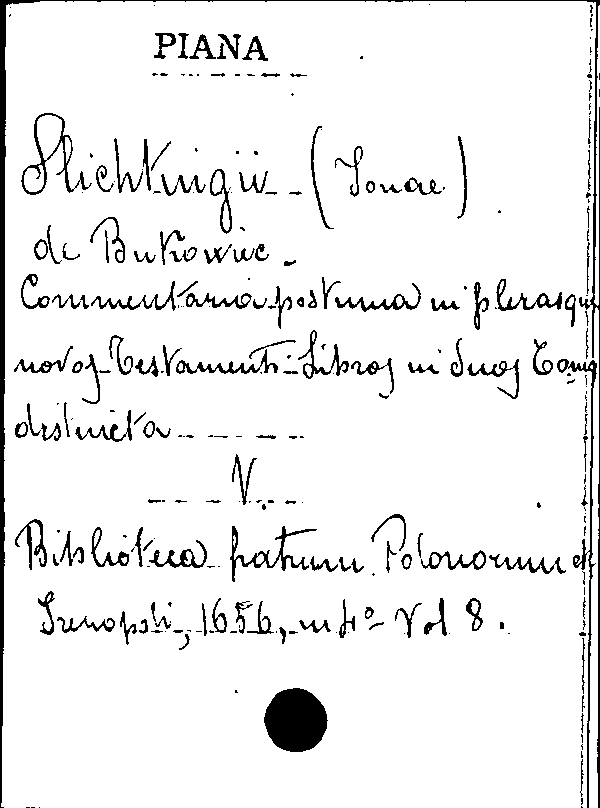 PIANA
Slichtingii - (Jonae)
de Bukowiec -
Commentaria postuma in plerasque
novos Testamenti Libros in duos Tomos
distincta
V.
Biblioteca fratrum Polonorum etc
Irenopoli, 1656, in fº Vol 8.